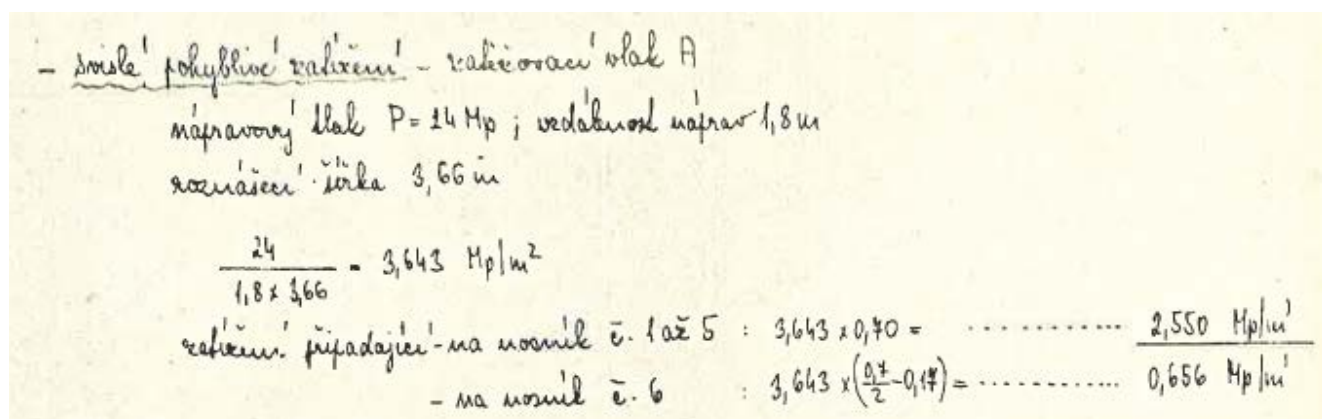 - svislé pohyblivé zatížení - zatěžovací vlak A
nápravový tlak P = 24 Mp ; vzdálenost náprav 1,8 m
roznášecí šířka 3,66 m
24 / 1,8 x 3,66 = 3,643 Mp/m²
zatížení připadající - na nosník č. 1 až 5 : 3,643 x 0,70 = ............ 2,550 Mp/m'
- na nosník č. 6 : 3,643 x (0,7/2 - 0,17) = ............ 0,656 Mp/m'